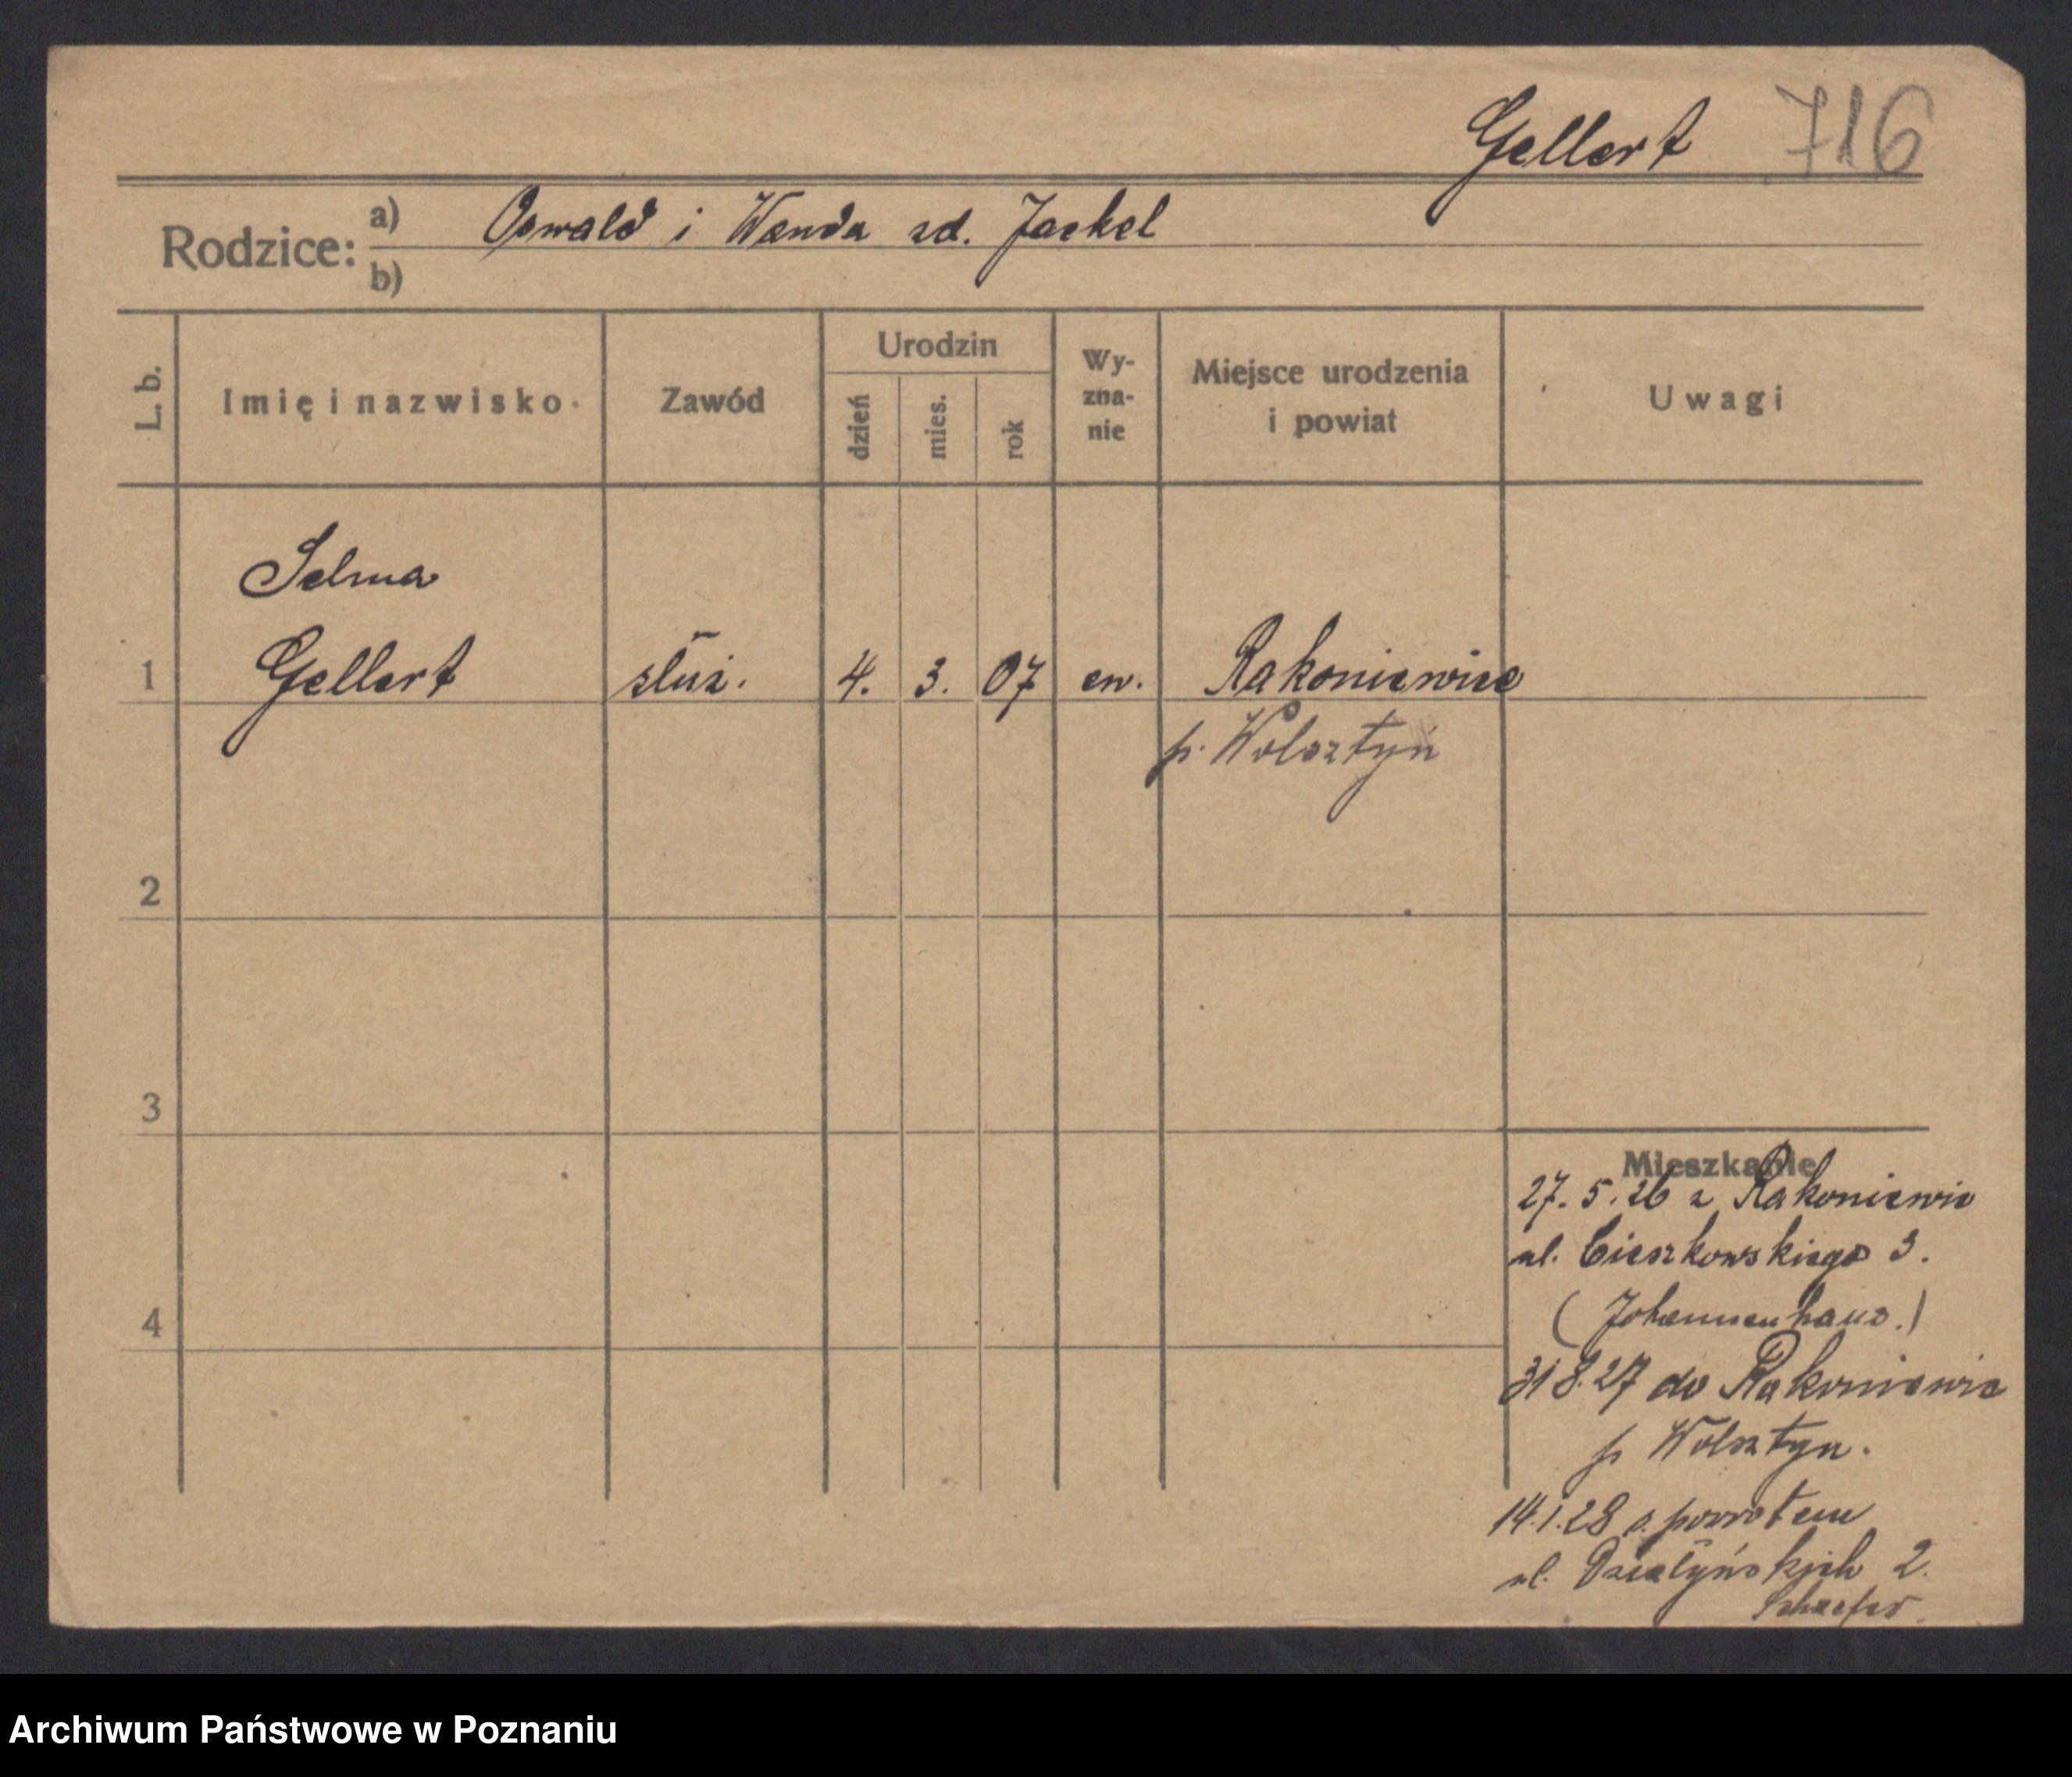 Gellert 716
Rodzice: a) Oswald i Wanda zd. Jaekel
b)
L. b. Imię i nazwisko Zawód Urodzin dzień mies. rok Wy-zna-nie Miejsce urodzenia i powiat Uwagi
Selma
1 Gellert służ. 4. 3. 07 ew. Rakoniewice
p. Wolsztyń
2
3
Mieszkanie
27. 5. 26 z Rakoniewic
ul. Cieszkowskiego 3.
4 (Johannenhaus.)
31 8. 27 do Rakoniewic
p Wolsztyn.
14. 1. 28 z powrotem
ul. Działyńskich 2.
Schaefer
Archiwum Państwowe w Poznaniu